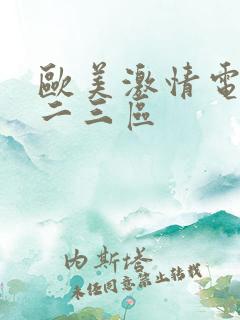 歐美激情電
二三區
内斯塔
未经同意禁止转载